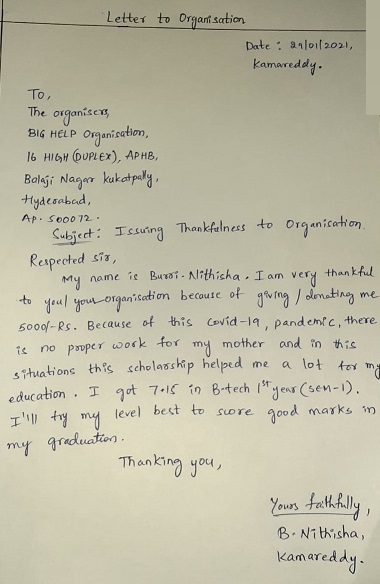 Letter to Organisation
Date : 29/01/2021,
Kamareddy.
To,
The organisers,
BIG HELP Organisation,
16 HIGH (DUPLEX), APHB,
Balaji Nagar kukatpally,
Hyderabad,
AP. 500072.
Subject: Issuing Thankfulness to Organisation.
Respected sir,
My name is Burri. Nithisha. I am very thankful
to you/ your organisation because of giving / donating me
5000/- Rs. Because of this Covid-19, pandemic, there
is no proper work for my mother and in this
situations this scholarship helped me a lot for my
education. I got 7.15 in B.tech 1st year (sem-1).
I'll try my level best to score good marks in
my graduation.
Thanking you,
Yours faithfully,
B. Nithisha,
Kamareddy.